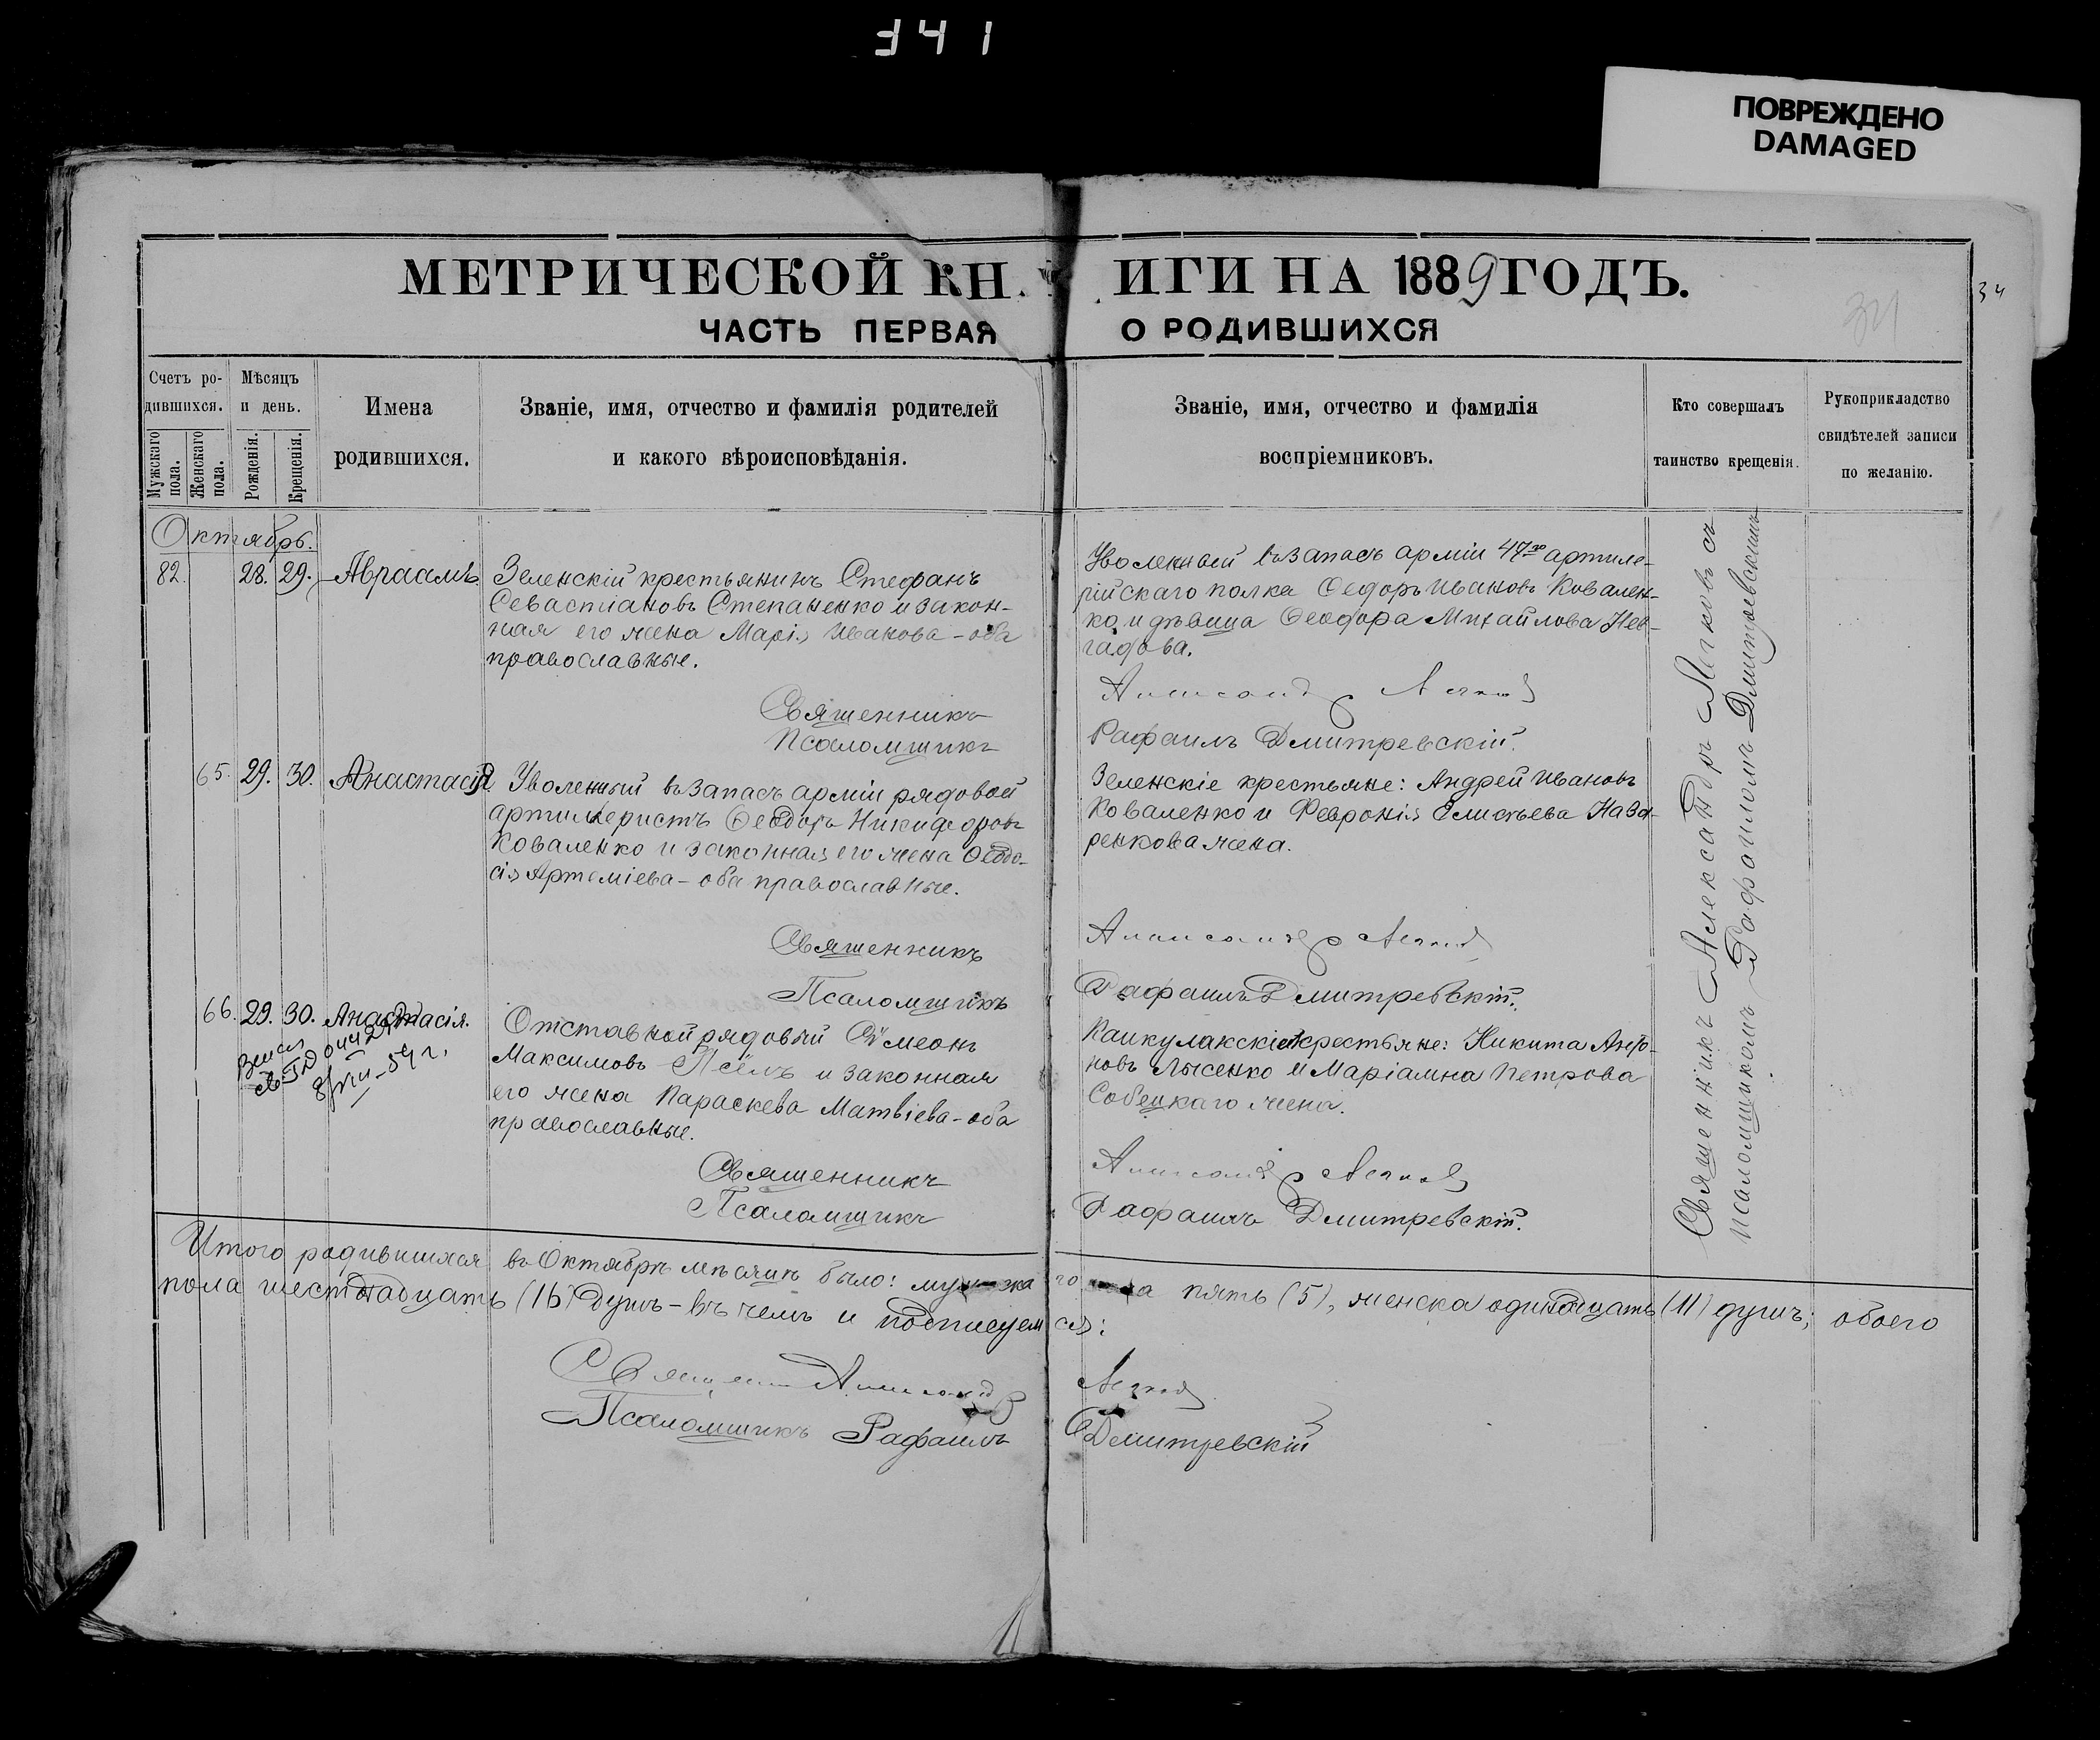 341
ПОВРЕЖДЕНО
DAMAGED
МЕТРИЧЕСКОЙ КНИГИ НА 1889 ГОДЪ.
34
34
ЧАСТЬ ПЕРВАЯ О РОДИВШИХСЯ
Счетъ ро-
дившихся.
Мужскаго пола.
Женскаго пола.
Мѣсяцъ
и день.
Рожденія.
Крещенія.
Имена
родившихся.
Званіе, имя, отчество и фамилія родителей
и какого вѣроисповѣданія.
Званіе, имя, отчество и фамилія
воспріемниковъ.
Кто совершалъ
таинство крещенія.
Рукоприкладство
свидѣтелей записи
по желанію.
Октябрь.
82. 28. 29. Авраамъ
Зеленскій крестьянинъ Стефанъ
Севастіановъ Степаненко и закон-
ная его жена Марія Иванова - оба
православные.
Священникъ
Псаломщикъ
Уволенный въ запасъ арміи 47го артиле-
рійскаго полка Ѳедоръ Ивановъ Ковален-
ко и дѣвица Ѳеодора Михайлова
Александръ Легковъ
Рафаилъ Дмитревскій.
65. 29. 30. Анастасія
Уволенный въ запасъ арміи рядовой
артилеристъ Ѳеодоръ Никифоровъ
Коваленко и законная его жена Ѳеодо-
сія Артеміева - оба православные.
Священникъ
Псаломщикъ
Зеленскіе крестьяне: Андрей Ивановъ
Коваленко и Февронія Елисѣева Наза-
ренкова жена.
Александръ Легковъ
Рафаилъ Дмитревскій.
66. 29. 30. Анастасія.
Отставной рядовый Сѵмеонъ
Максимовъ и законная
его жена Параскева Матвіева - оба
православные.
Священникъ
Псаломщикъ
Каикулакскіе крестьяне: Никита
Лысенко и Маріамна Петрова
Собецкаго жена.
Александръ Легковъ
Рафаилъ Дмитревскій.
Священникъ Александръ Легковъ съ
псаломщикомъ Рафаиломъ Дмитревскимъ
Итого родившихся въ Октябрѣ мѣсяцѣ было: мужскаго пола пять (5), женска одинадцать (11) душъ; обоего
пола шестнадцать (16) душъ - въ чемъ и подписуемся:
Священникъ Александръ Легковъ
Псаломщикъ Рафаилъ Дмитревскій